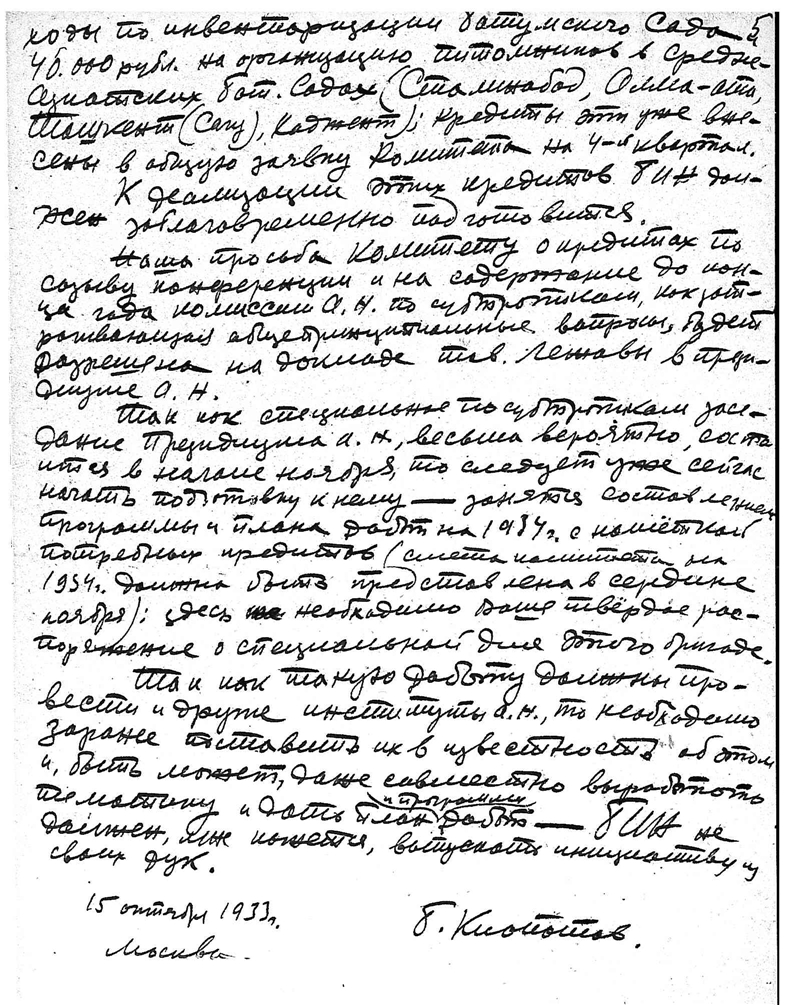 ходы по инвентаризации Батумского Сада 5
40.000 рубл. на организацию питомников в Средне-
азиатских Бот. Садах (Сталинабад, Алма-ата,
Ташкент (Сагу), Ходжент); кредиты эти уже вне-
сены в общую заявку Комитета на 4-й квартал.
К реализации этих кредитов БИН дол-
жен заблаговременно подготовиться.
Наша просьба Комитету о кредитах по
созыву конференции и на содержание до кон-
ца года комиссии А.Н. по субтропикам, как зат-
рагивающая общепринципиальные вопросы, будет
разрешена на докладе тов. Лежавы в прези-
диуме А.Н.
Так как специальное по субтропикам засе-
дание Президиума А.Н., весьма вероятно, состо
ится в начале ноября, то следует уже сейчас
начать подготовку к нему — заняться составлением
программы и плана работ на 1934г. с намёткой
потребных кредитов (смета комитета на
1934г. должна быть представлена в середине
ноября); здесь необходимо Ваше твёрдое рас-
поряжение о специальной для этого бригаде.
Так как такую работу должны про-
вести и другие институты А.Н., то необходимо
заранее поставить их в известность об этом
и, быть может, даже совместно выработать
тематику и дать план и программы работ — БИН не
должен, мне кажется, выпускать инициативу из
своих рук.
15 октября 1933г.
Москва.
Б. Клопотов.